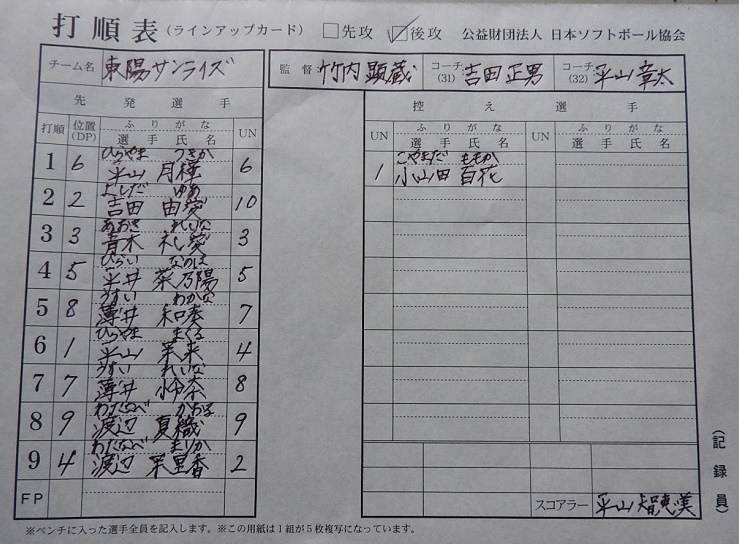 打順表(ラインアップカード) □先攻 ☑後攻 公益財団法人 日本ソフトボール協会
チーム名 東陽サンライズ
監督 竹内 顕蔵 コーチ(31) 吉田 正男 コーチ(32) 平山 章太
先発選手
打順 位置(DP) ふりがな 選手氏名 UN
1 6 ひらやま つきか 平山 月稀 6
2 2 よしだ ゆあ 吉田 由愛 10
3 3 あおき れいな 青木 礼愛 3
4 5 ひらい なのは 平井 菜乃陽 5
5 8 うすい わかな 薄井 和奏 7
6 1 ひらやま まくる 平山 茉来 4
7 7 うすい れいな 薄井 怜奈 8
8 9 わたなべ かおる 渡辺 夏織 9
9 4 わたなべ まりか 渡辺 茉里香 2
FP
控え選手
UN ふりがな 選手氏名 UN ふりがな 選手氏名
1 こやまだ ももか 小山田 百花
スコアラー 平山 智恵美
(記録員)
※ベンチに入った選手全員を記入します。※この用紙は1組が5枚複写になっています。